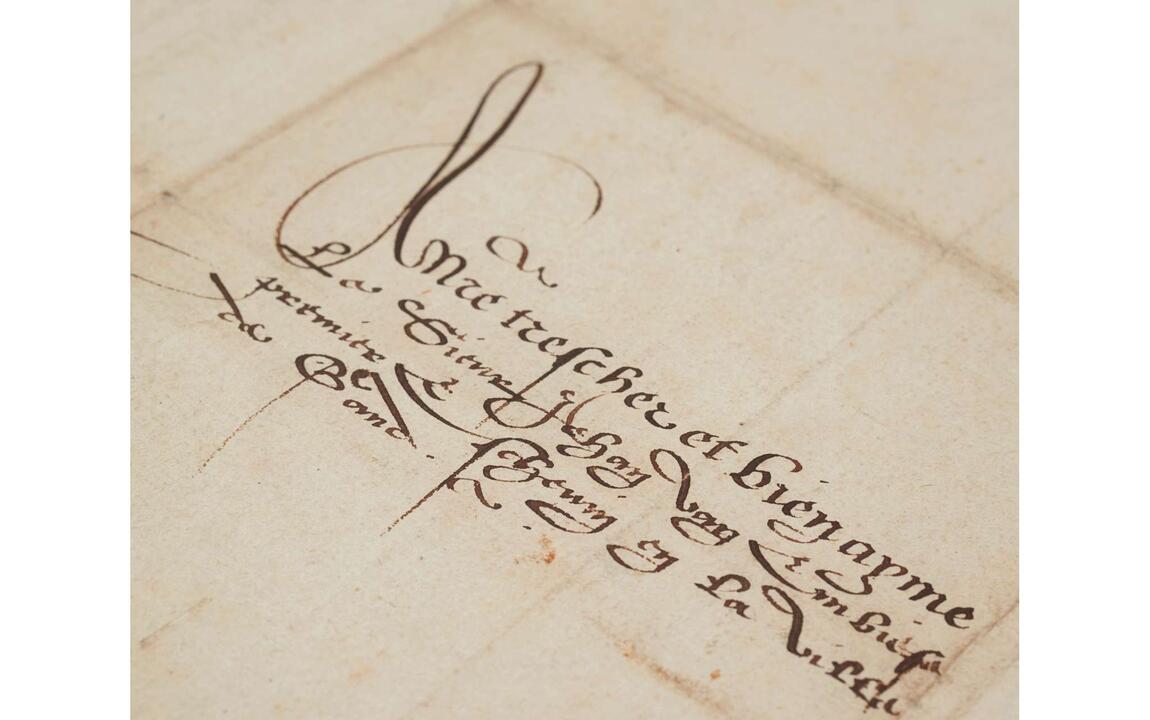 A nre trescher et bien ayme
Le Sieur Jehan Van Embise
premier Eschevin en La Ville
de Gand.